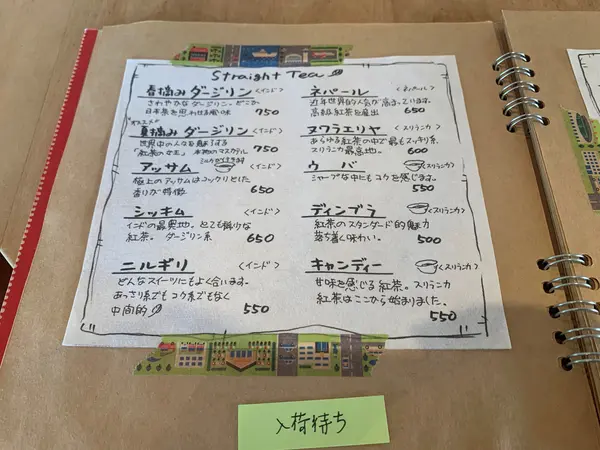 Straight Tea
春摘み ダージリン <インド>
さわやかなダージリン。どこか
日本茶を思わせる風味 750
オススメ
夏摘み ダージリン <インド>
世界中の人々を魅了する
「紅茶の女王」 本物のマスカテル 750
アッサム ミルクが合います <インド>
極上のアッサムはコックリとした
香りが特徴 650
シッキム <インド>
インドの最奥地。とても稀りな
紅茶。ダージリン系 650
ニルギリ <インド>
どんなスイーツにもよく合います。
あっさり系でもコク系でもなく
中間的 550
ネパール <ネパール>
近年世界的人気が高まっています。
高級紅茶を産出 650
ヌワラエリヤ <スリランカ>
あらゆる紅茶の中で最もスッキリ系
スリランカ最高地。 600
ウバ <スリランカ>
シャープな中にもコクを感じます。
550
ディンブラ <スリランカ>
紅茶のスタンダード的魅力
落ち着く味わい。 500
キャンディー <スリランカ>
甘味を感じる紅茶。スリランカ
紅茶はここから始まりました。
550
入荷待ち